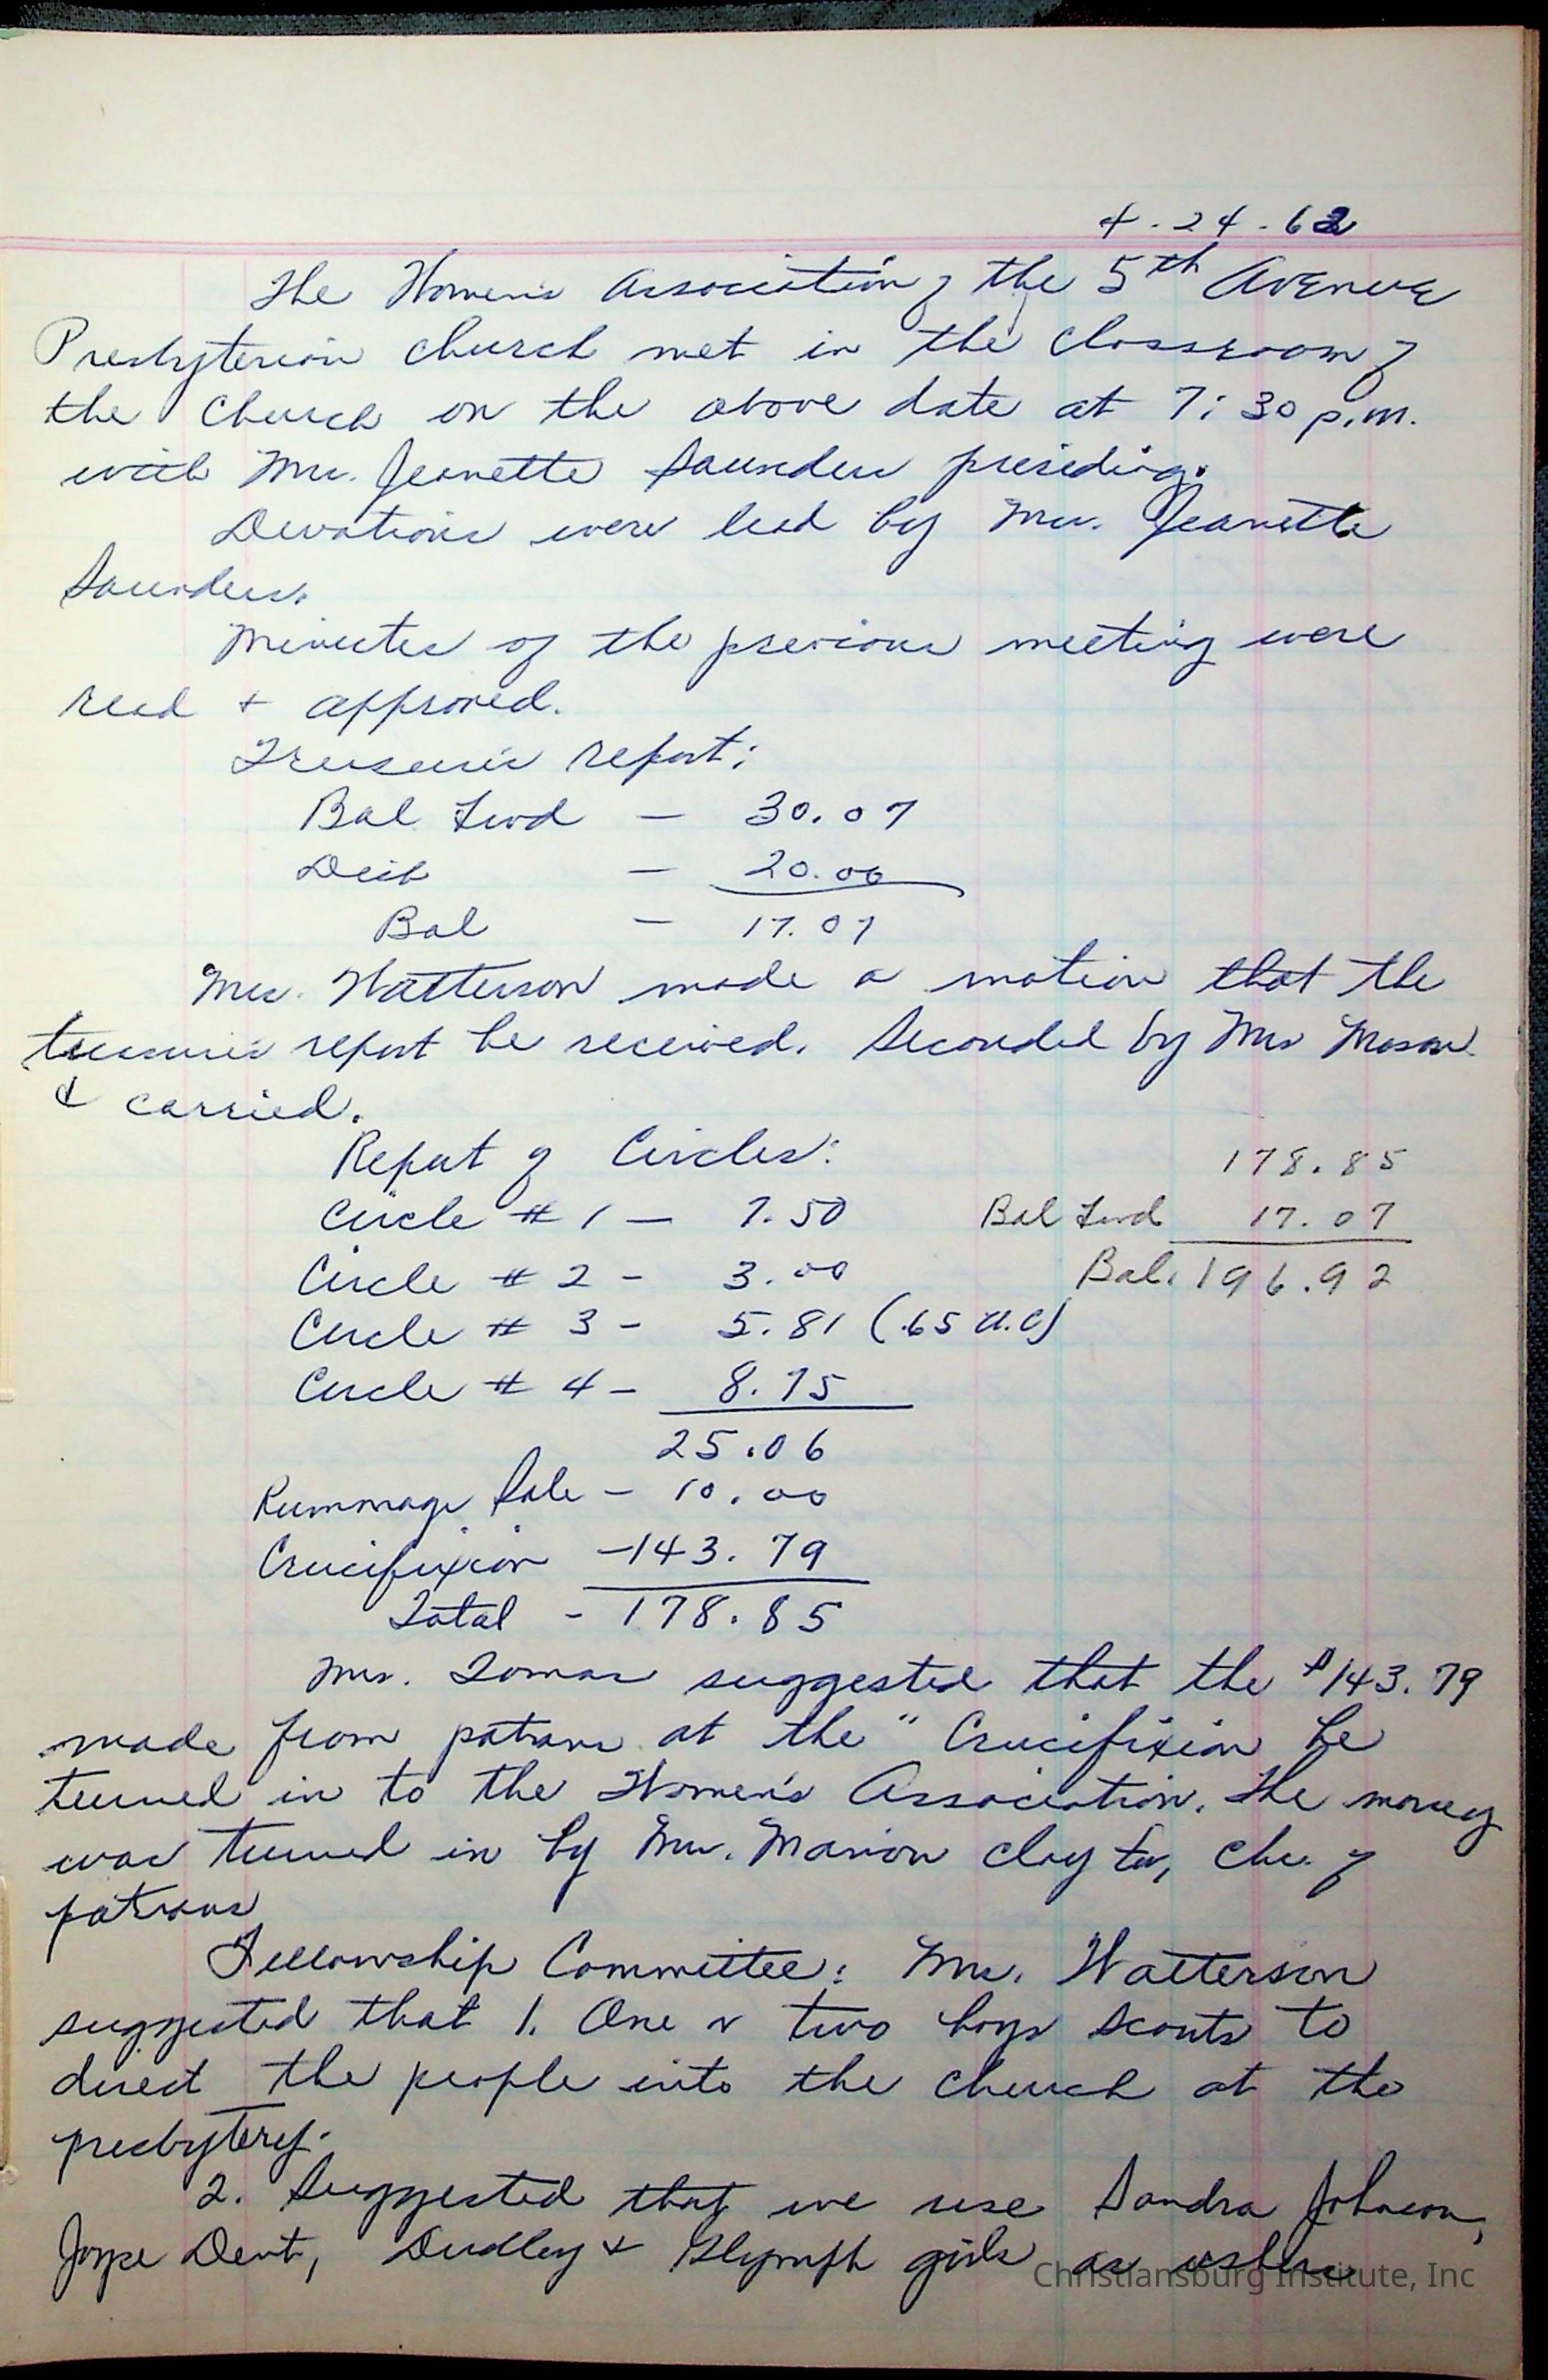 4-24-62
The Women's Association of the 5th Avenue
Presbyterian Church met in the classroom of
the Church on the above date at 7:30 p.m.
with Mrs. Jeanette Saunders presiding.
Devotions were lead by Mrs. Jeanette
Saunders.
Minutes of the previous meeting were
read + approved.
Treasurer's report:
Bal Fwd — 30.07
— 20.00
Bal — 17.07
Mrs. Watterson made a motion that the
treasurer's report be received. Seconded by Mrs Mason
& carried.
Report of Circles:
178.85
Circle # 1 — 7.50 Bal Fwd 17.07
Circle # 2 - 3.00 Bal. 196.92
Circle # 3 - 5.81 (.65 U.C)
Circle # 4 - 8.75
25.06
Rummage Sale - 10.00
Crucifixion -143.79
Total - 178.85
Mrs. suggested that the $143.79
made from patrons at the " Crucifixion be
turned in to the Women's Association. The money
was turned in by Mrs. Marion Claytor, Chr. of
patrons
Fellowship Committee: Mrs. Watterson
suggested that 1. One or two boys scouts to
direct the people into the church at the
presbytery.
2. Suggested that we use Sandra Johnson,
Joyce Dent, Dudley + Glymph girls as ushers
Christiansburg Institute, Inc